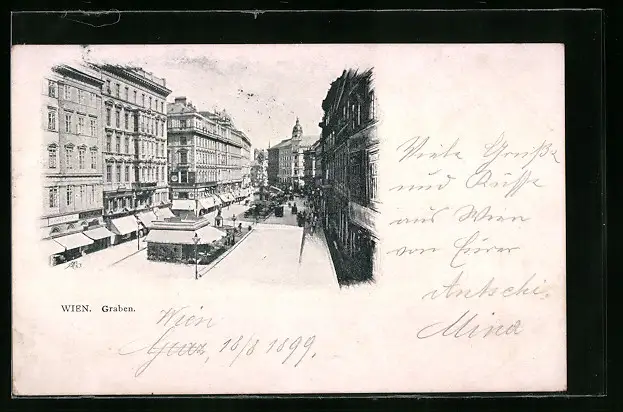 Viele Grüße
und Küsse
aus Wien
von Eurer
Antschi.
Mina
WIEN. Graben.
Wien
Graz, 18/8 1899.